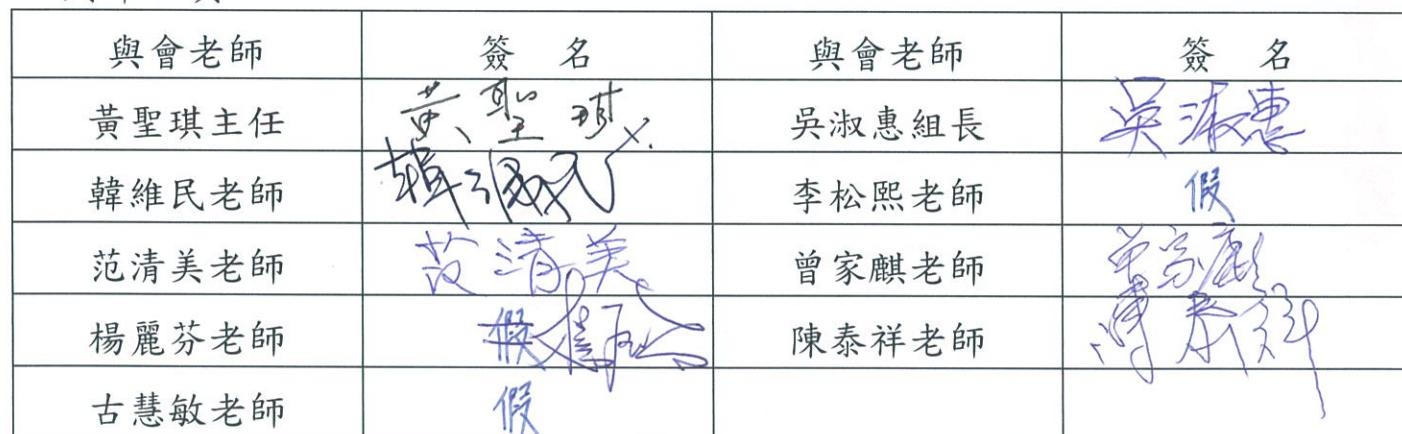 與會老師 簽 名 與會老師 簽 名
黃聖琪主任 黃聖琪 吳淑惠組長 吳淑惠
韓維民老師 韓維民 李松熙老師 假
范清美老師 范清美 曾家麒老師 曾家麒
楊麗芬老師 假 陳泰祥老師 陳泰祥
古慧敏老師 假